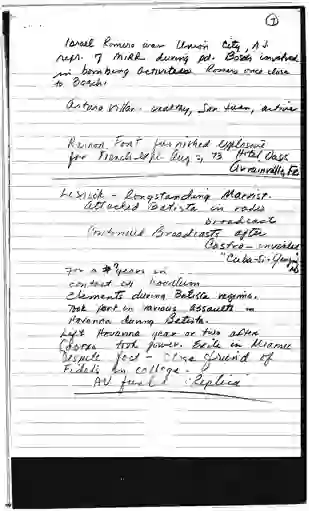 7
Israel Romero was Union City, NJ
repr. of MIRR during pd. Bosch involved
in bombing activities Romero once close
to Bosch.
Arturo Villar - wealthy, San Juan, active
Ramon Font furnished explosive
for French Aug 73 Hotel Oasis
Avrainville, Fr
Lesnick - Longstanding Marxist.
Attacked Batista in radio
broadcasts
Continued Broadcasts after
Castro - invented
"Cuba-Si-
For a # years in
contact w/ hoodlum
elements during Batista regime.
Took part in various assaults in
Havana during Batista.
Left Havana year or two after
Castro took power. Exile in Miami
Despite fact - close friend of
Fidels in college.
Replica